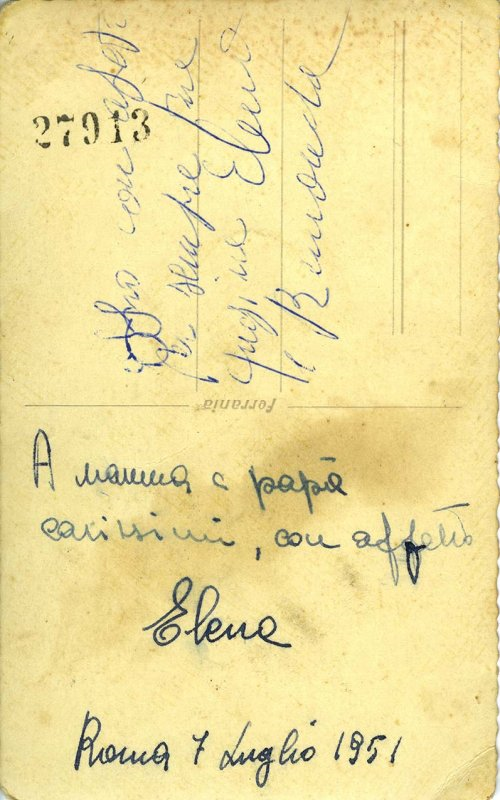 27913
con affetto
per sempre
Elena
e
Ferrania
A mamma e papà
carissimi, con affetto
Elena
Roma 7 Luglio 1951